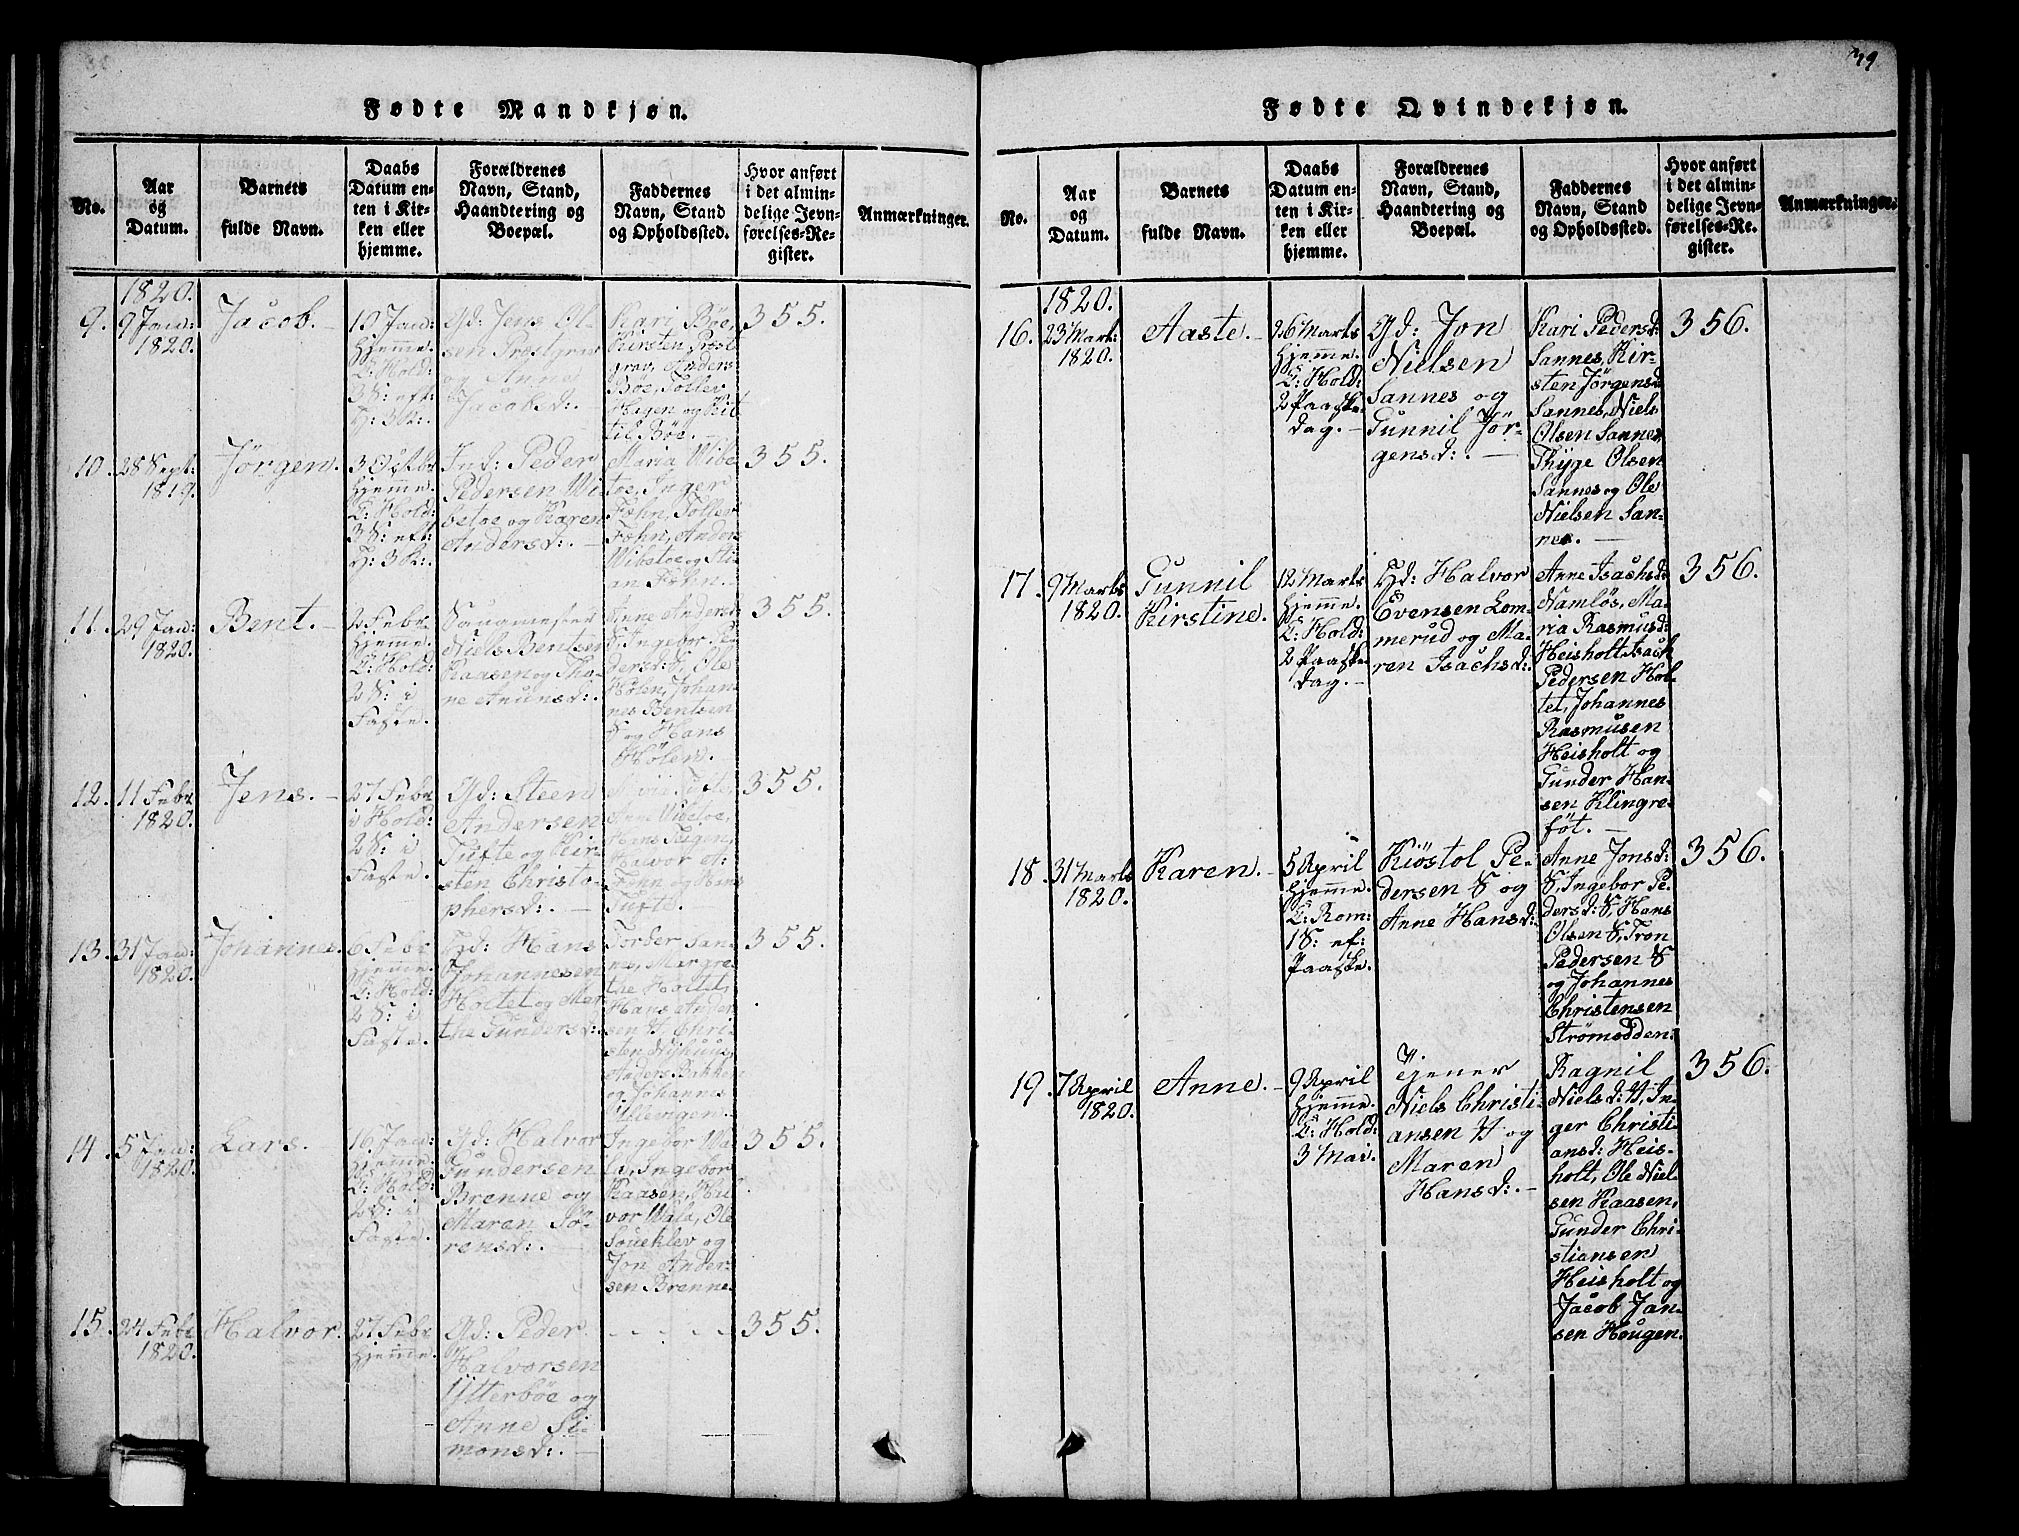 Fødte Mandkjøn.
No.
Aar
og
Datum.
Barnets
fulde Navn.
Daabs
Datum en-
ten i Kir-
ken eller
hjemme.
Forældrenes
Navn, Stand,
Haandtering og
Boepæl.
Faddernes
Navn, Stand
og Opholdssted.
Hvor anført
i det almin-
delige Jevn-
førelses-Re-
gister.
Anmærkninger.
1820.
9.
9 Jan:
1820.
Jacob.
Hjemme.
C: Hold:
3 S: eft:
H: 3 K:.
Gd: Jens Ol-
sen Prestgrav
og Anne
Jacobsd:. –
Kari Böe,
Kirsten Prest
grav, Anders
Böe, Tollev
Hagen og Kit
til Böe. –
355.
10.
28 Sept:
1819.
Jörgen.
3 Octbr
hjemme.
C: Hold:
3 S: eft:
H: 3 K:.
Ind: Peder
Pedersen Wi-
betoe og Karen
Andersd:. –
Maria Wibe
toe, Inger
Fehn, Tollev
Fehn, Anders
Wibetoe og
Fehn.
355.
11.
29 Jan:
1820.
Bent. –
2 Febr
hjemme.
C: Hold:
2 S: i
Faste.
Saugmester
Niels Bentsen
Kaasen og Tho-
ne Anunsd:.
Anne Andersd:
S, Ingebor Pe
dersd: S, Ole
Hölen, Johan
nes Bentsen
S og Hans
Hölen.
355.
12.
11 Febr
1820.
Jens. –
27 Febr
i Hold:
2 S: i
Faste.
Gd: Steen
Andersen
Tufte og Kir-
sten Christo-
phersd:. –
Anne Wibetoe,
Halvor
Fehn og Hans
Tufte.
355.
13.
31 Jan:
1820.
Johannes.
6 Febr
hjemme.
C: Hold:
2 S: i
Faste.
Hd: Hans
Johannesen
Holtet og Mar
the Gundersd:
Torber San-
nes, Margre-
the Holtet,
Hans Ander
sen H, Chri-
sten Nÿhuus,
Anders Bakke
og Johannes
Ullevigen.
355.
14.
5 Jan:
1820.
Lars. –
16 Jan:
hjemme.
C: Hold:
2 S: i
Faste.
Gd: Halvor
Gundersen
Brenne og
Maren Sö-
rensd:.
Ingebor Wa-
la, Ingebor
Kaasen, Hal
vor Wala, Ole
og
Jon Ander-
sen Brenne.
355.
15.
24 Febr
1820.
Halvor.
27 Febr
hjemme.
Gd: Peder
Halvorsen
Ytterböe og
Anne Si-
monsd:. –
– – – –
355.
79
Fødte Qvindekjøn.
No.
Aar
og
Datum.
Barnets
fulde Navn.
Daabs
Datum en-
ten i Kir-
ken eller
hjemme.
Forældrenes
Navn, Stand,
Haandtering og
Boepæl.
Faddernes
Navn, Stand
og Opholdssted.
Hvor anført
i det almin-
delige Jevn-
førelses-Re-
gister.
Anmærkninger.
1820.
16.
23 Marts
1820.
Aaste. –
26 Marts
hjemme.
C: Hold:
2 Paaske
dag. –
Gd: Jon
Nielsen
Sannes og
Gunnil Jör-
gensd:. –
Kari Pedersd:
Sannes, Kir-
sten Jörgensd:
Sannes, Niels
Olsen Sannes
Thÿge Olsen
Sannes og Ole
Nielsen San-
nes. –
356.
17.
9 Marts
1820.
Gunnil
Kirstine.
12 Marts
hjemme.
C: Hold:
2 Paaske
dag. –
Hd: Halvor
Evensen Lom-
merud og Ma-
ren Isachsd:
Anne Isachsd:
Namlös, Ma-
ria Rasmusd:
Heisholt, Isach
Pedersen Hol-
tet, Johannes
Rasmusen
Heisholt og
Gunder Han-
sen Klingre-
föt. –
356.
18.
31 Marts
1820.
Karen. –
5 April
hjemme.
C: Rom:
1 S: ef:
Paaske.
Kiöstol Pe-
dersen S og
Anne Hansd:
Anne Jonsd:
S, Ingebor Pe-
dersd: S, Hans
Olsen S, Tron
Pedersen S
og Johannes
Christensen
Strömodden.
356.
19.
7 April
1820.
Anne. –
9 April
hjemme.
C: Hold:
3 Mai.
Tjener
Niels Christi-
ansen H og
Maren
Hansd:. –
Ragnil
Nielsd: H, In-
ger Christi-
ansd: Heis-
holt, Ole Niel
sen Kaasen,
Gunder Chri-
stiansen
Heisholt og
Jacob Jan-
sen Hougen.
356.